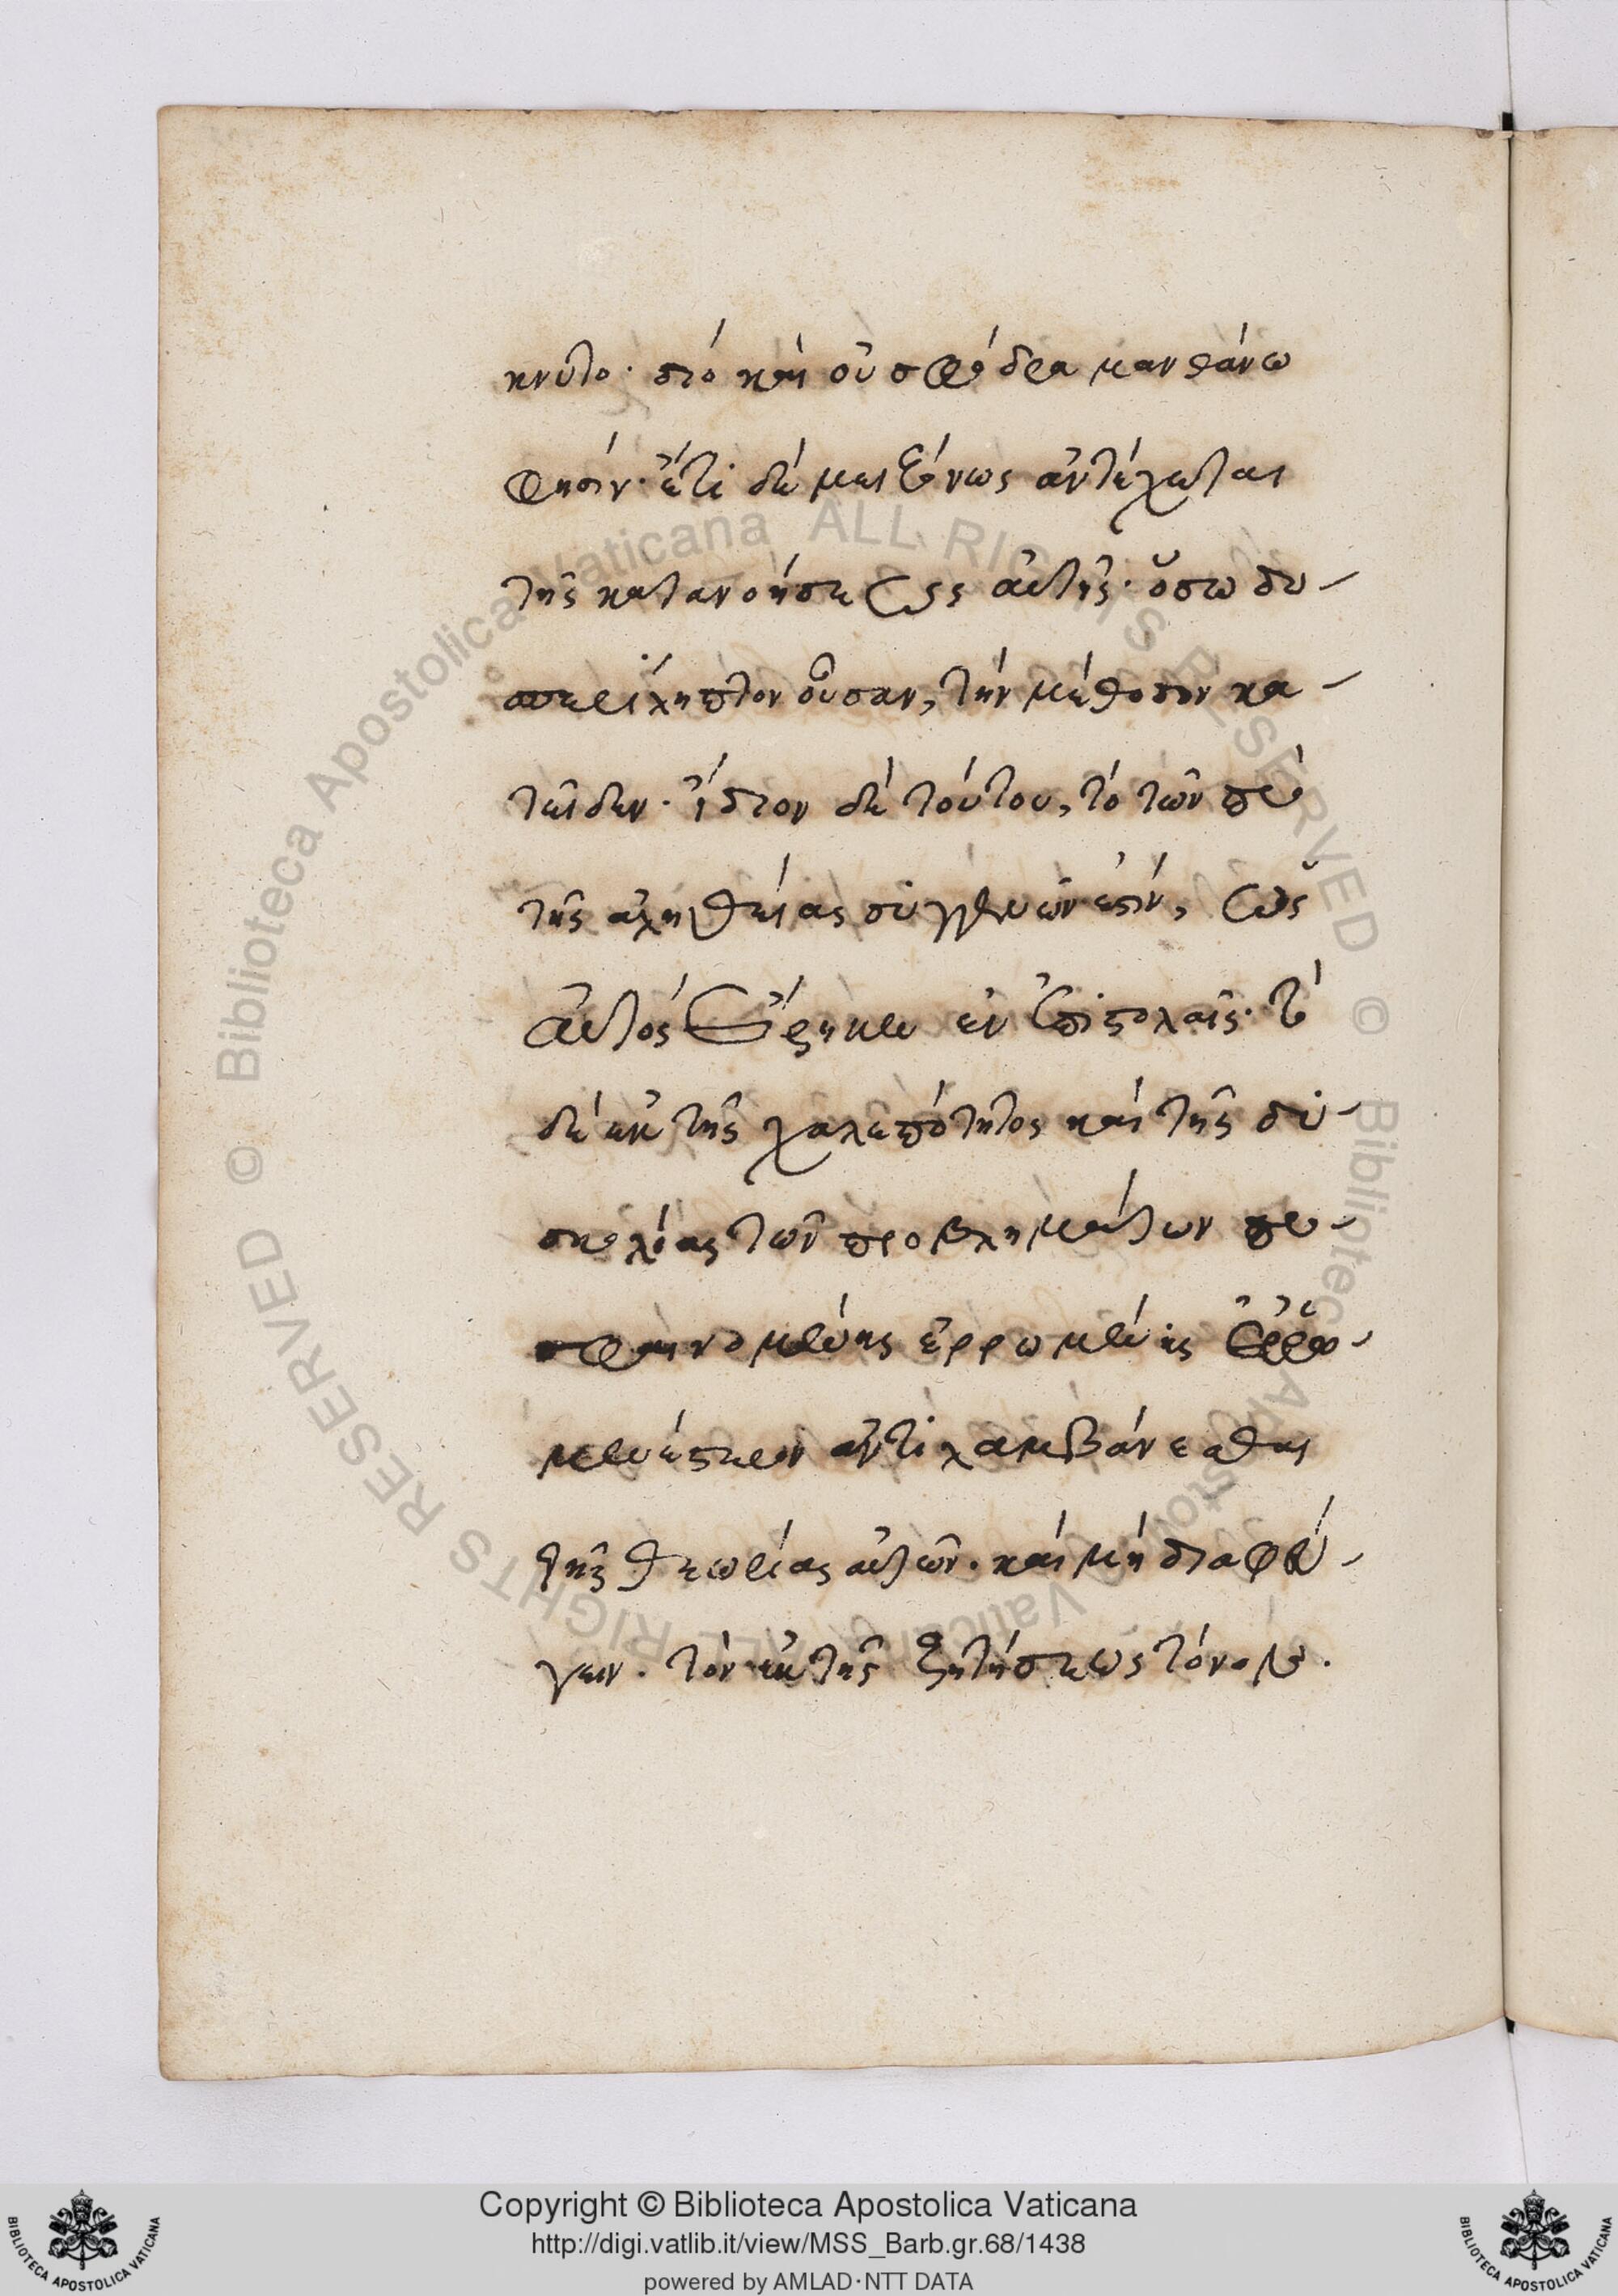 κνυτο· διὸ καὶ οὐ σφόδρα μανθάνω
φησίν· ἔτι δὲ μειζόνως ἀντέχεται
τῆς κατανοήσεως αὐτῆς· ὅσω δυ-
σπερίληπτον οὖσαν, τὴν μέθοδον κα-
τεῖδεν· ἴδιον δὲ τούτου, τὸ τῶν περὶ
τῆς ἀληθείας συγγενῶν ἐστὶν, ὡς
αὐτὸς εἴρηκεν ἐν ἐπιστολαῖς· τὸ
δὲ ἐκ τῆς χαλεπότητος καὶ τῆς δυ-
σκολίας τῶν προβλημάτων προ-
φαινομένης ἐρρωμένης ἐρρω-
μενέστερον ἀντιλαμβάνεσθαι
τῆς θεωρίας αὐτῶν· καὶ μὴ διαφεύ-
γειν· τὸν ἐκ τῆς ζητήσεως πόνον.
Copyright © Biblioteca Apostolica Vaticana
http://digi.vatlib.it/view/MSS_Barb.gr.68/1438
powered by AMLAD·NTT DATA
BIBLIOTECA APOSTOLICA VATICANA
BIBLIOTECA APOSTOLICA VATICANA
© Biblioteca Apostolica Vaticana ALL RIGHTS RESERVED
© Biblioteca Apostolica Vaticana ALL RIGHTS RESERVED